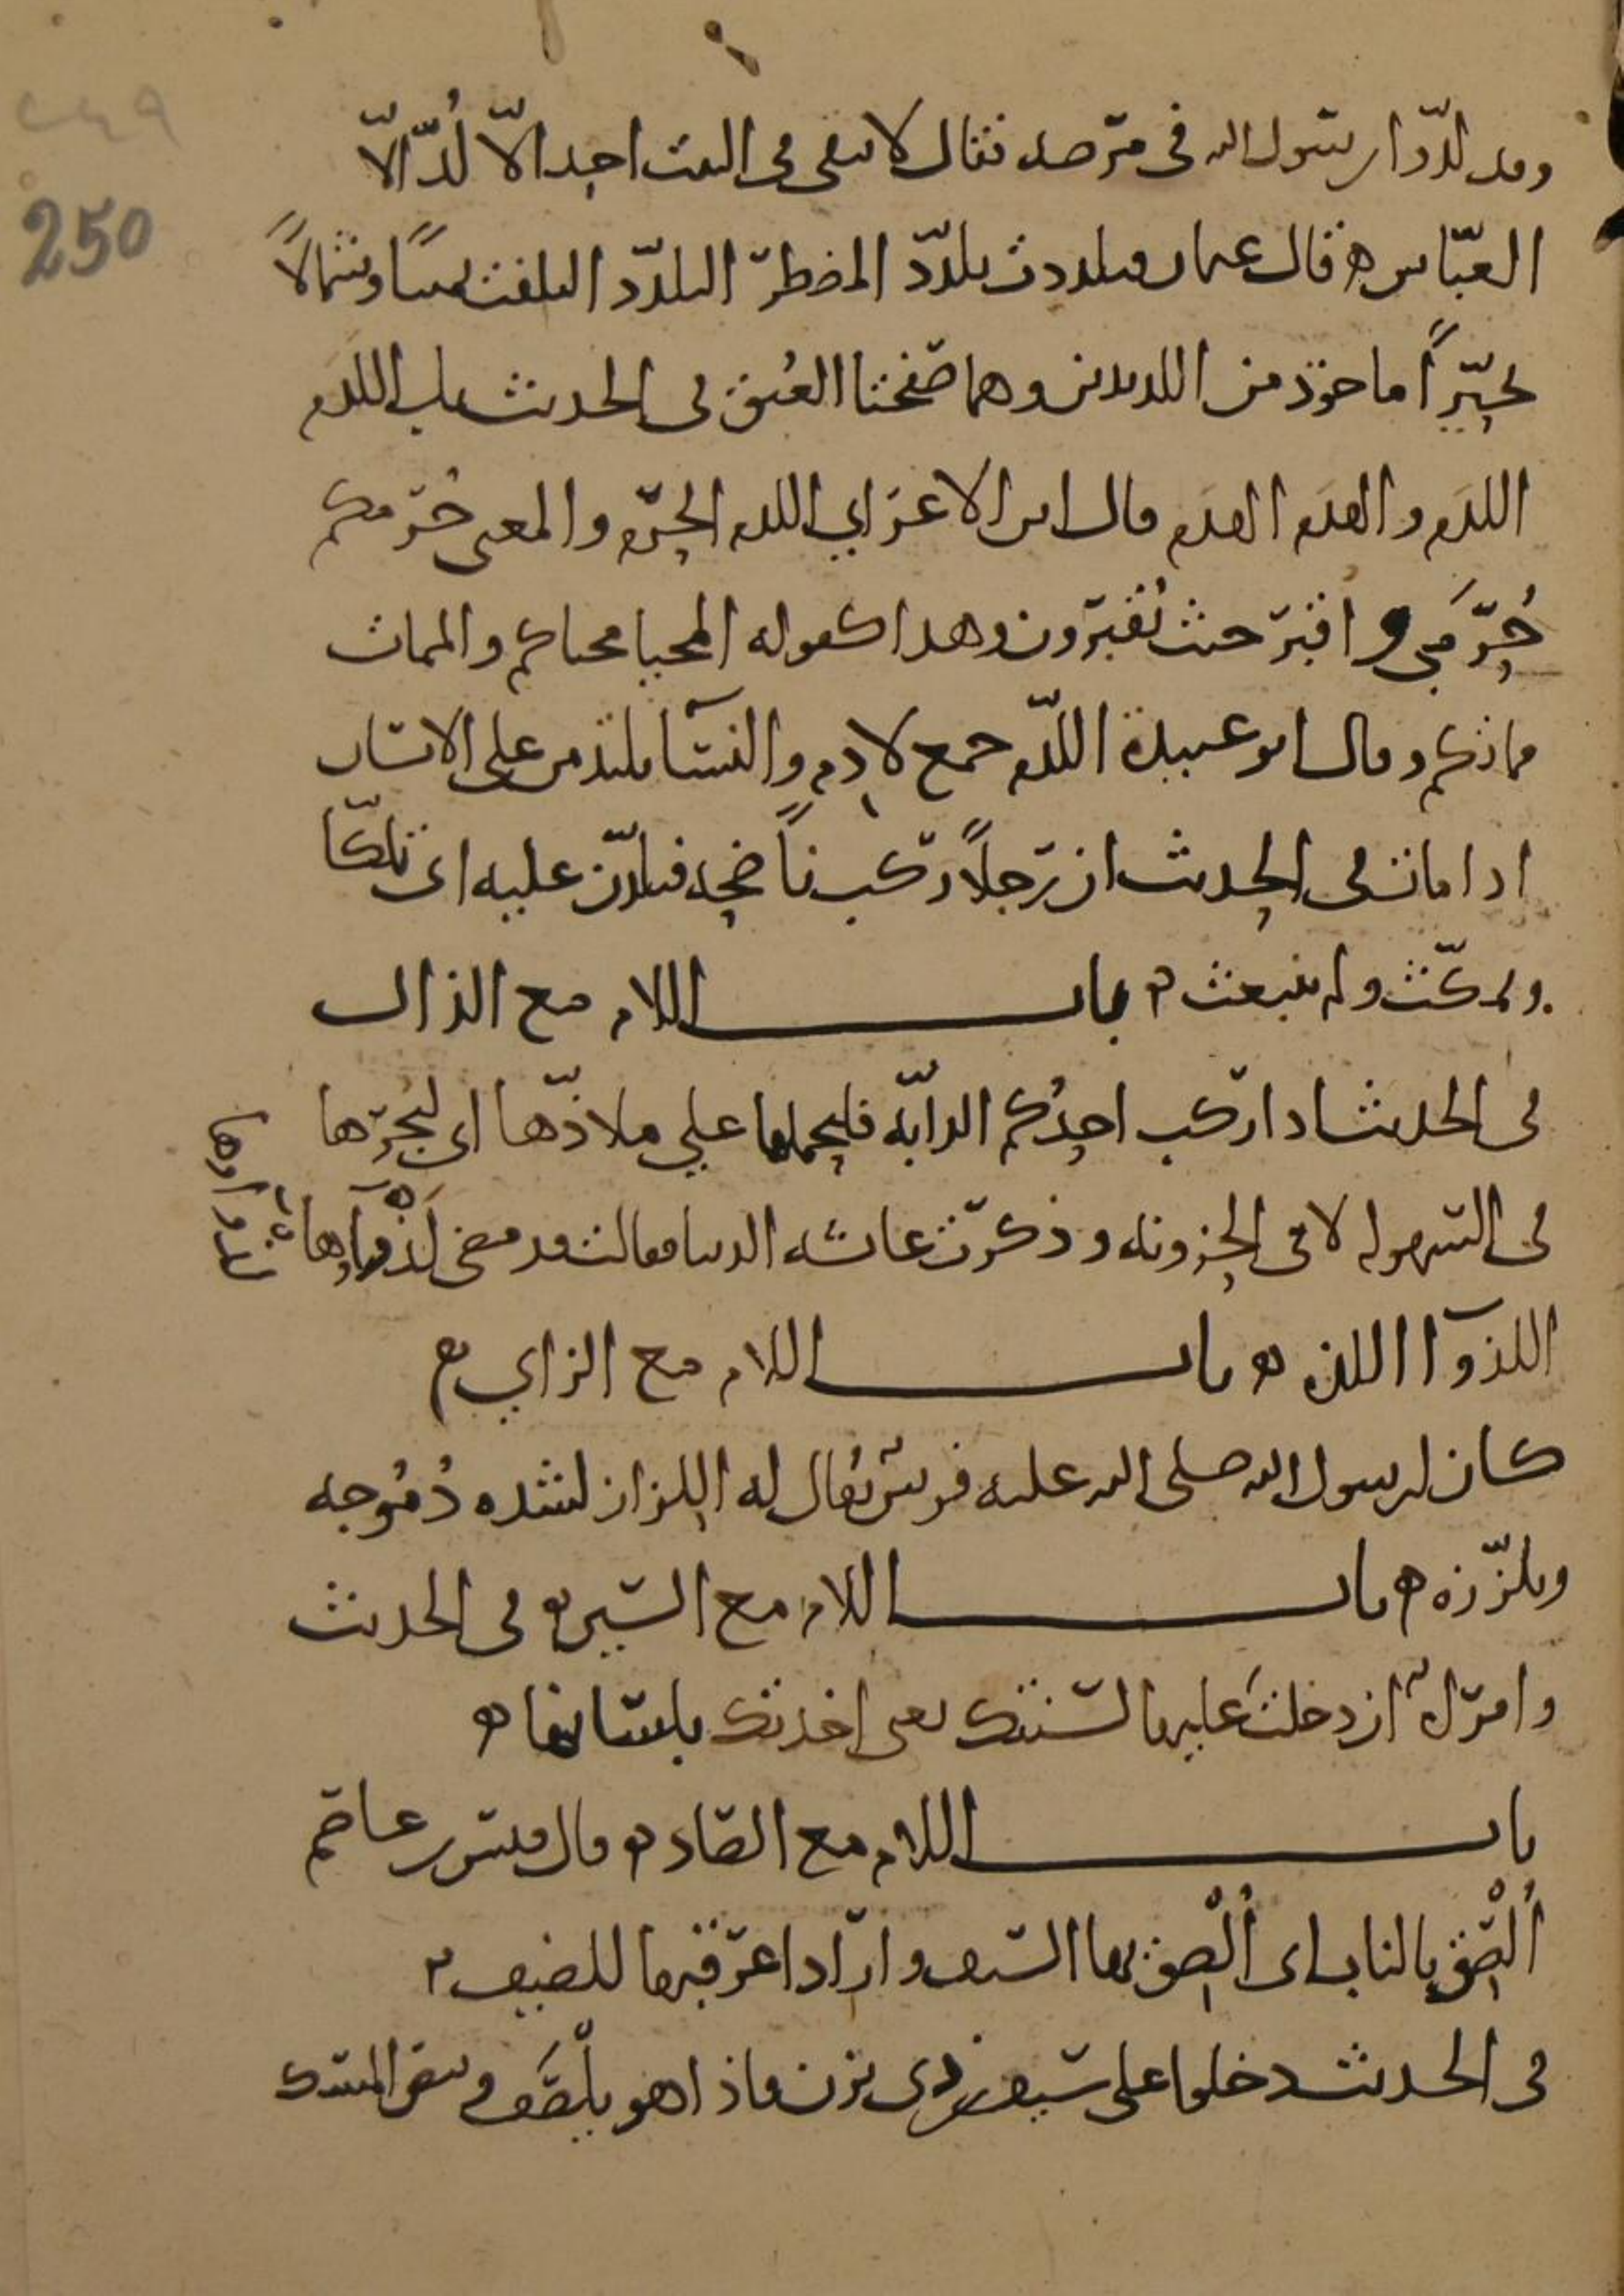 ٢٤٩
250
وقد لدّوا رسول الله في مرضه فقال لا يبقى في البيت احد الّا لُدّ الّا
العبّاس ه قال عثمان فتلددت تلدّد المضطرّ التلدّد التلفت يمينًا وشمالًا
تحيّرًا ماخوذ من اللديدين وهما صفحتا العنق في الحديث بل اللدم
اللدم والهدم الهدم قال ابن الاعرابي اللدم الحرم والمعنى حرمكم
حُرَمي واقبر حيث تُقبرون وهذا كقوله المحيا محياكم والممات
مماتكم وقال ابو عبيدة اللدم جمع لادم والنسآ يلتدمن على الانسان
اذا مات في الحديث ان رجلًا ركب ناضحه فتلدّن عليه اى تلكّا
وتمكّث ولم ينبعث ه باب اللام مع الذال
في الحديث اذا ركب احدكم الدابّه فليحملها على ملاذّها اى ليُجرها
في السهوله لا في الحزونه وذكرت عائشه الدنيا فقالت قد مضى لَذْوَآها
اللذوآ اللذه ه باب اللام مع الزاي ه
كان لرسول الله صلى الله عليه فرسٌ يُقال له اللزاز لشده دُمُوجه
وتلزّزه ه باب اللام مع السين ه في الحديث
وامراةٌ ان دخلتَ عليها لسنتك يعني اخذتك بلسانها ه
باب اللام مع الصاد ه قال قيس بن عاصم
اُلْصِق بالناب اى اُلْصِق بها السيف واراد اعرقبها للضيف ه
في الحديث دخلوا على سيف بن ذي يزن فاذا هو يلْصَف وبيض المسك